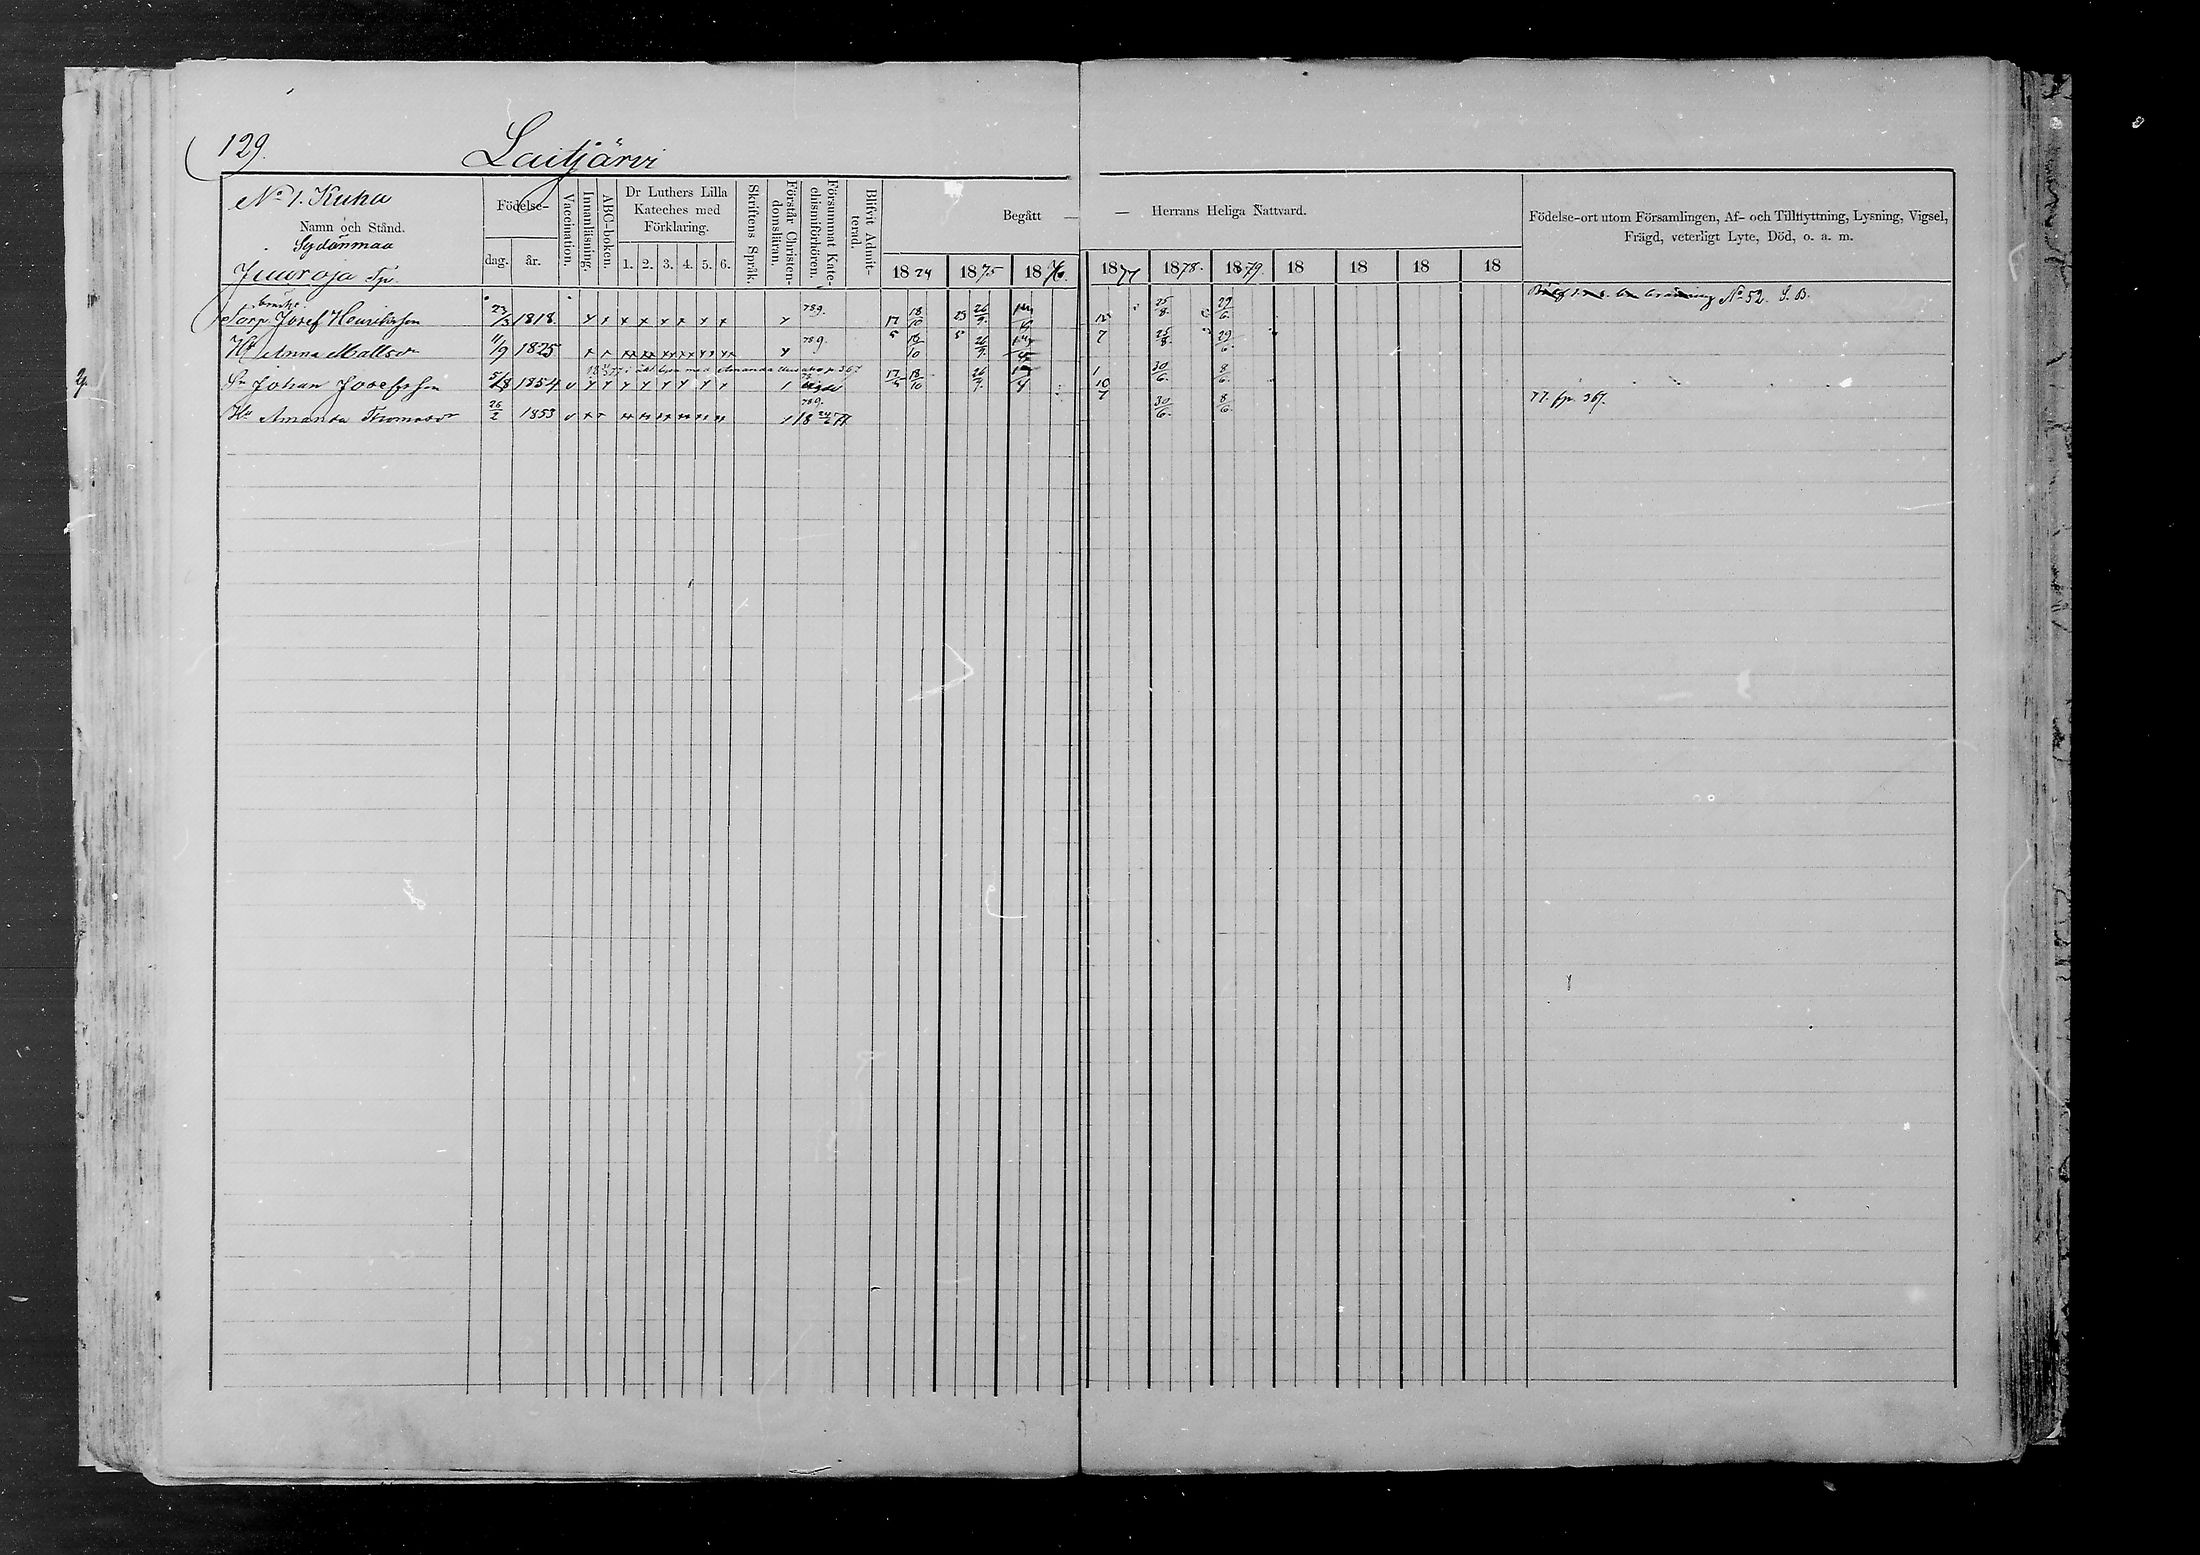 129.
Laitjärvi
No 1. Kuha
Namn och Stånd.
Sydänmaa
Juuroja Tp.
Födelse-
dag. år.
Vaccination.
Innanläsning.
ABC-boken.
Dr Luthers Lilla
Kateches med
Förklaring.
1. 2. 3. 4. 5. 6.
Skriftens Språk.
Förstår Christen-
domsläran.
Försummat Kate-
chismiförhören.
Blifvit Admit-
terad.
Begått — — Herrans Heliga Nattvard.
1874 1875 1876. 1877 1878. 1879. 18 18 18 18
Födelse-ort utom Församlingen, Af- och Tillflyttning, Lysning, Vigsel,
Frägd, veterligt Lyte, Död, o. a. m.
No 52. S. B.
Torp Josef Henriksson 23/3 1818. x x x x x x x x x 789. 18/10 26/9. 25/8. 29/6.
Hu Anna Mattsdr 11/9 1825 789. 26/9. 7 25/8. 29/6.
med Amanda p. 367
Sn Johan Josefsson 5/8 1854 v x x x x x x x x 18/10 26/9. 30/6. 8/6.
Hu Amanda Thomasdr 26/2 1853 v 789. 30/6. 8/6. 77. fp. 367.